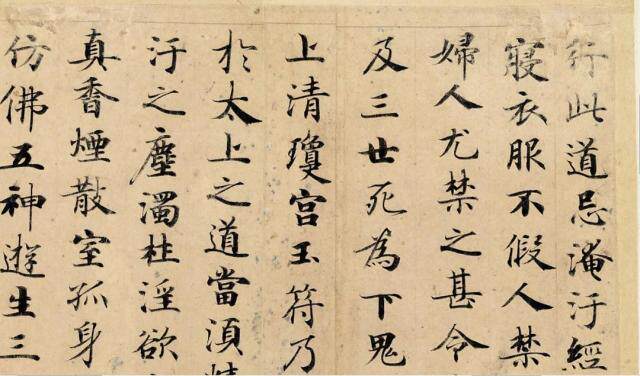 行此道忌淹汙經
寢衣服不假人禁
婦人尤禁之甚令
及三世死為下鬼
上清瓊宮玉符乃
於太上之道當須精
汙之塵濁杜淫欲
真香煙散室孤身
仿佛五神遊生三